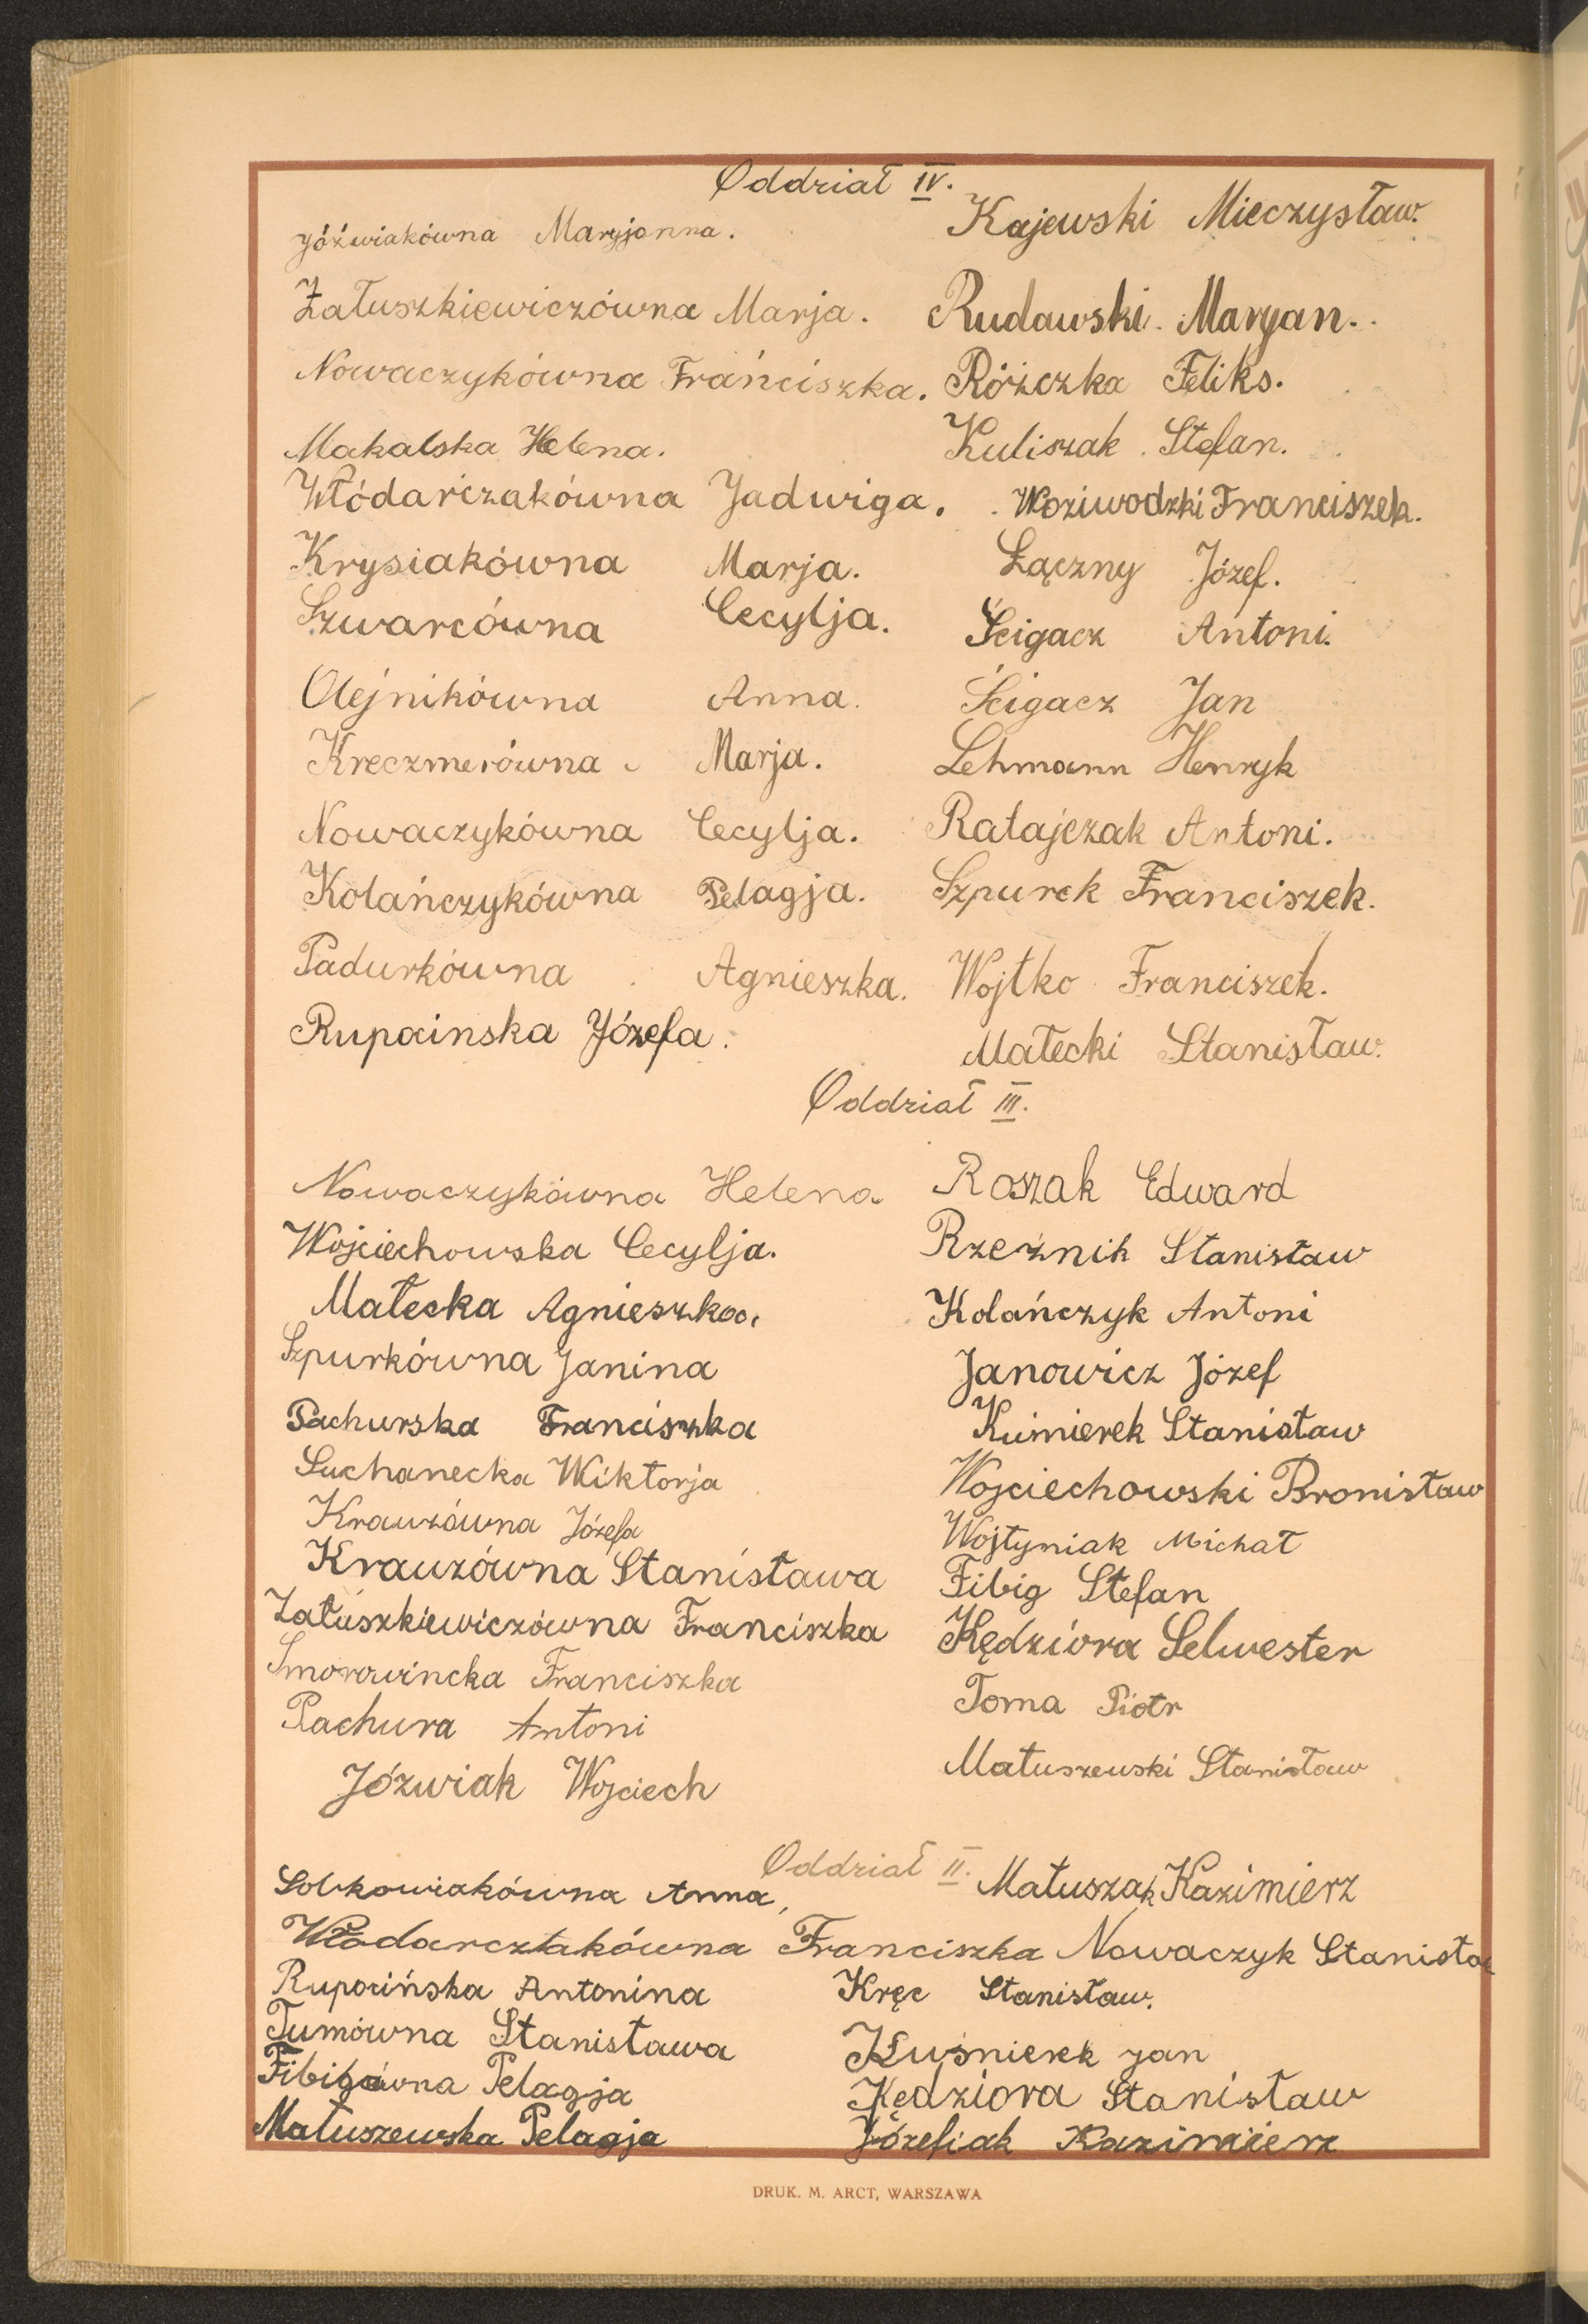 Oddział IV.
Jóźwiakówna Maryjanna. Kajewski Mieczysław.
Załuszkiewiczówna Marja. Rudawski Maryan.
Nowaczykówna Franciszka. Różczka Feliks.
Makalska Helena. Kuliszak Stefan.
Włódarczakówna Jadwiga. Woziwodzki Franciszek.
Krysiakówna Marja. Łączny Józef.
Szwarcówna Cecylja. Ścigacz Antoni.
Olejnikówna Anna. Ścigacz Jan
Kreczmerówna Marja. Lehmann Henryk
Nowaczykówna Cecylja. Ratajczak Antoni.
Kolańczykówna Pelagja. Szpurek Franciszek.
Padurkówna Agnieszka. Wojtko Franciszek.
Rupocinska Józefa. Małecki Stanisław.
Oddział III.
Nowaczykówna Helena Roszak Edward
Wojciechowska Cecylja. Rzeźnik Stanisław
Małecka Agnieszka. Kolańczyk Antoni
Szpurkówna Janina Janowicz Józef
Pachurska Franciszka Kuśnierek Stanisław
Suchanecka Wiktorja Wojciechowski Bronisław
Krauzówna Józefa Wojtyniak Michał
Krauzówna Stanisława Fibig Stefan
Załuszkiewiczówna Franciszka Kędziora Selwester
Smorowincka Franciszka Toma Piotr
Pachura Antoni Matuszewski Stanisław
Józwiak Wojciech
Oddział II.
Sobkowiakówna Anna, Matuszak Kazimierz
Włodarczakówna Franciszka Nowaczyk Stanisław
Rupocińska Antonina Kręc Stanisław.
Tumówna Stanisława Kuśnierek Jan
Fibigówna Pelagja Kędziora Stanisław
Matuszewska Pelagja Józefiak Kazimierz
DRUK. M. ARCT, WARSZAWA